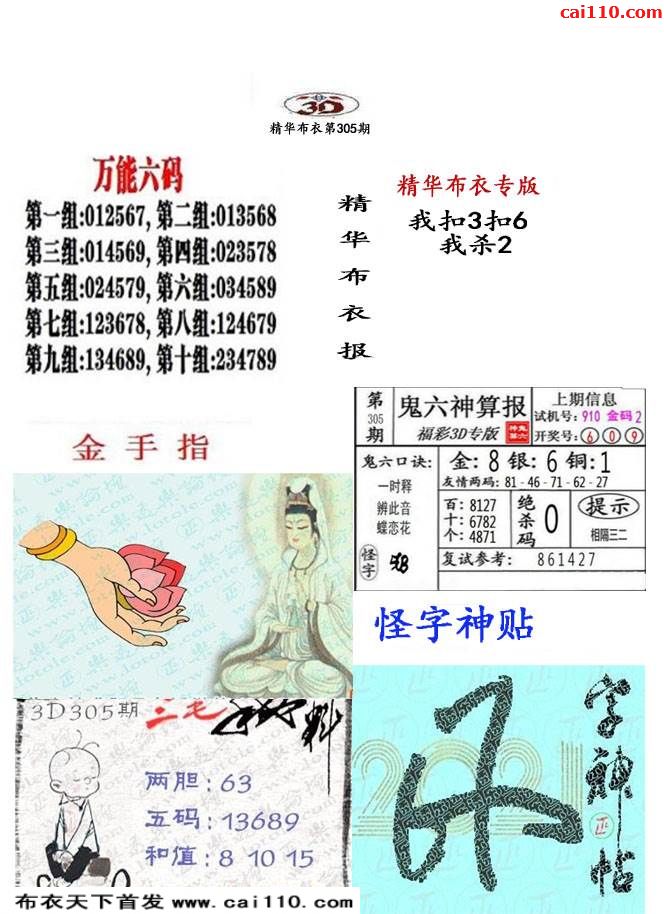 cai110.com
3D
精华布衣第305期
万能六码
第一组:012567, 第二组:013568
第三组:014569, 第四组:023578
第五组:024579, 第六组:034589
第七组:123678, 第八组:124679
第九组:134689, 第十组:234789
精华布衣报
精华布衣专版
我扣3扣6
我杀2
金手指
第305期
鬼六神算报
福彩3D专版
上期信息
试机号: 910 金码2
开奖号: 6 0 9
鬼六口诀:
一时释
辨此音
蝶恋花
怪字
金: 8 银: 6 铜: 1
友情两码: 81 - 46 - 71 - 62 - 27
百: 8127
十: 6782
个: 4871
绝杀码 0
提示
相隔三二
复试参考: 861427
怪字神贴
3D305期
三毛
料
两胆: 63
五码: 13689
和值: 8 10 15
2021
字神帖
布衣天下首发 www.cai110.com